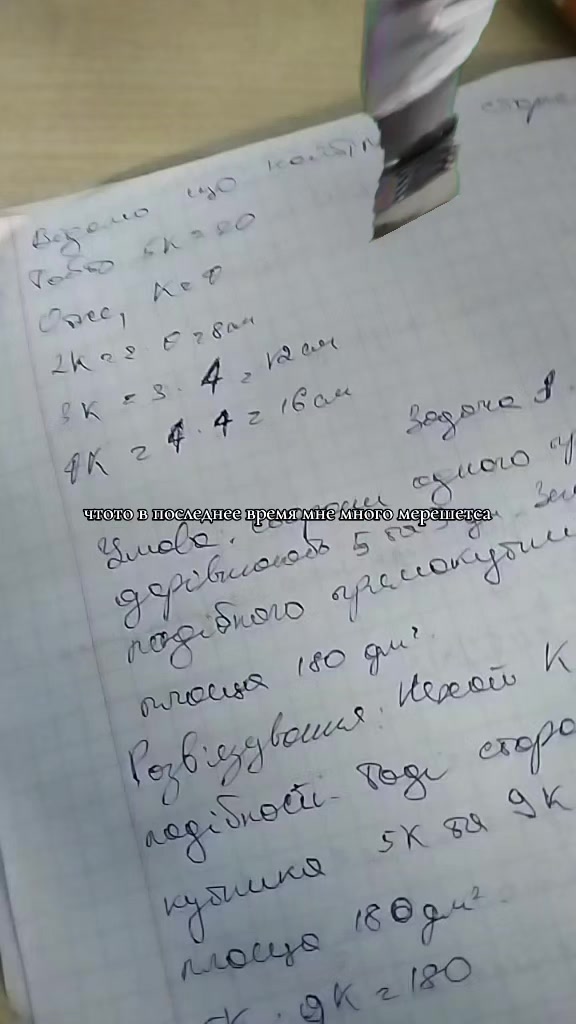 Відомо що
Тобто 5К = 20
Отже, К = 4
2К = 2 . 4 = 8 см
3К = 3 . 4 = 12 см
4К = 4 . 4 = 16 см
Задача 8.
чтото в последнее время мне много мерешетса
Умова. Сторони одного
дорівнюють 5 та 9 дм.
подібного прямокутни
площа 180 дм²
Розв'язування: Нехай К
подібності. Тоді сторо
кутника 5К та 9К
площа 180 дм²
5К . 9К = 180